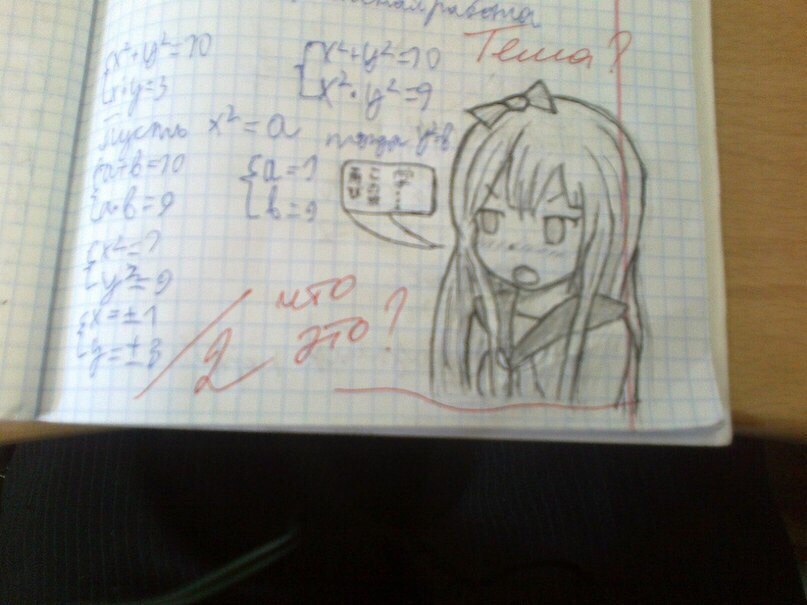 работа
Тема?
{x²+y²=10
{x·y=3
{x²+y²=10
{x²·y²=9
Пусть x²=a тогда y²=b
{a+b=10
{a·b=9
{a=1
{b=9
{x²=1
{y²=9
{x=±1
{y=±3
2
что
это?